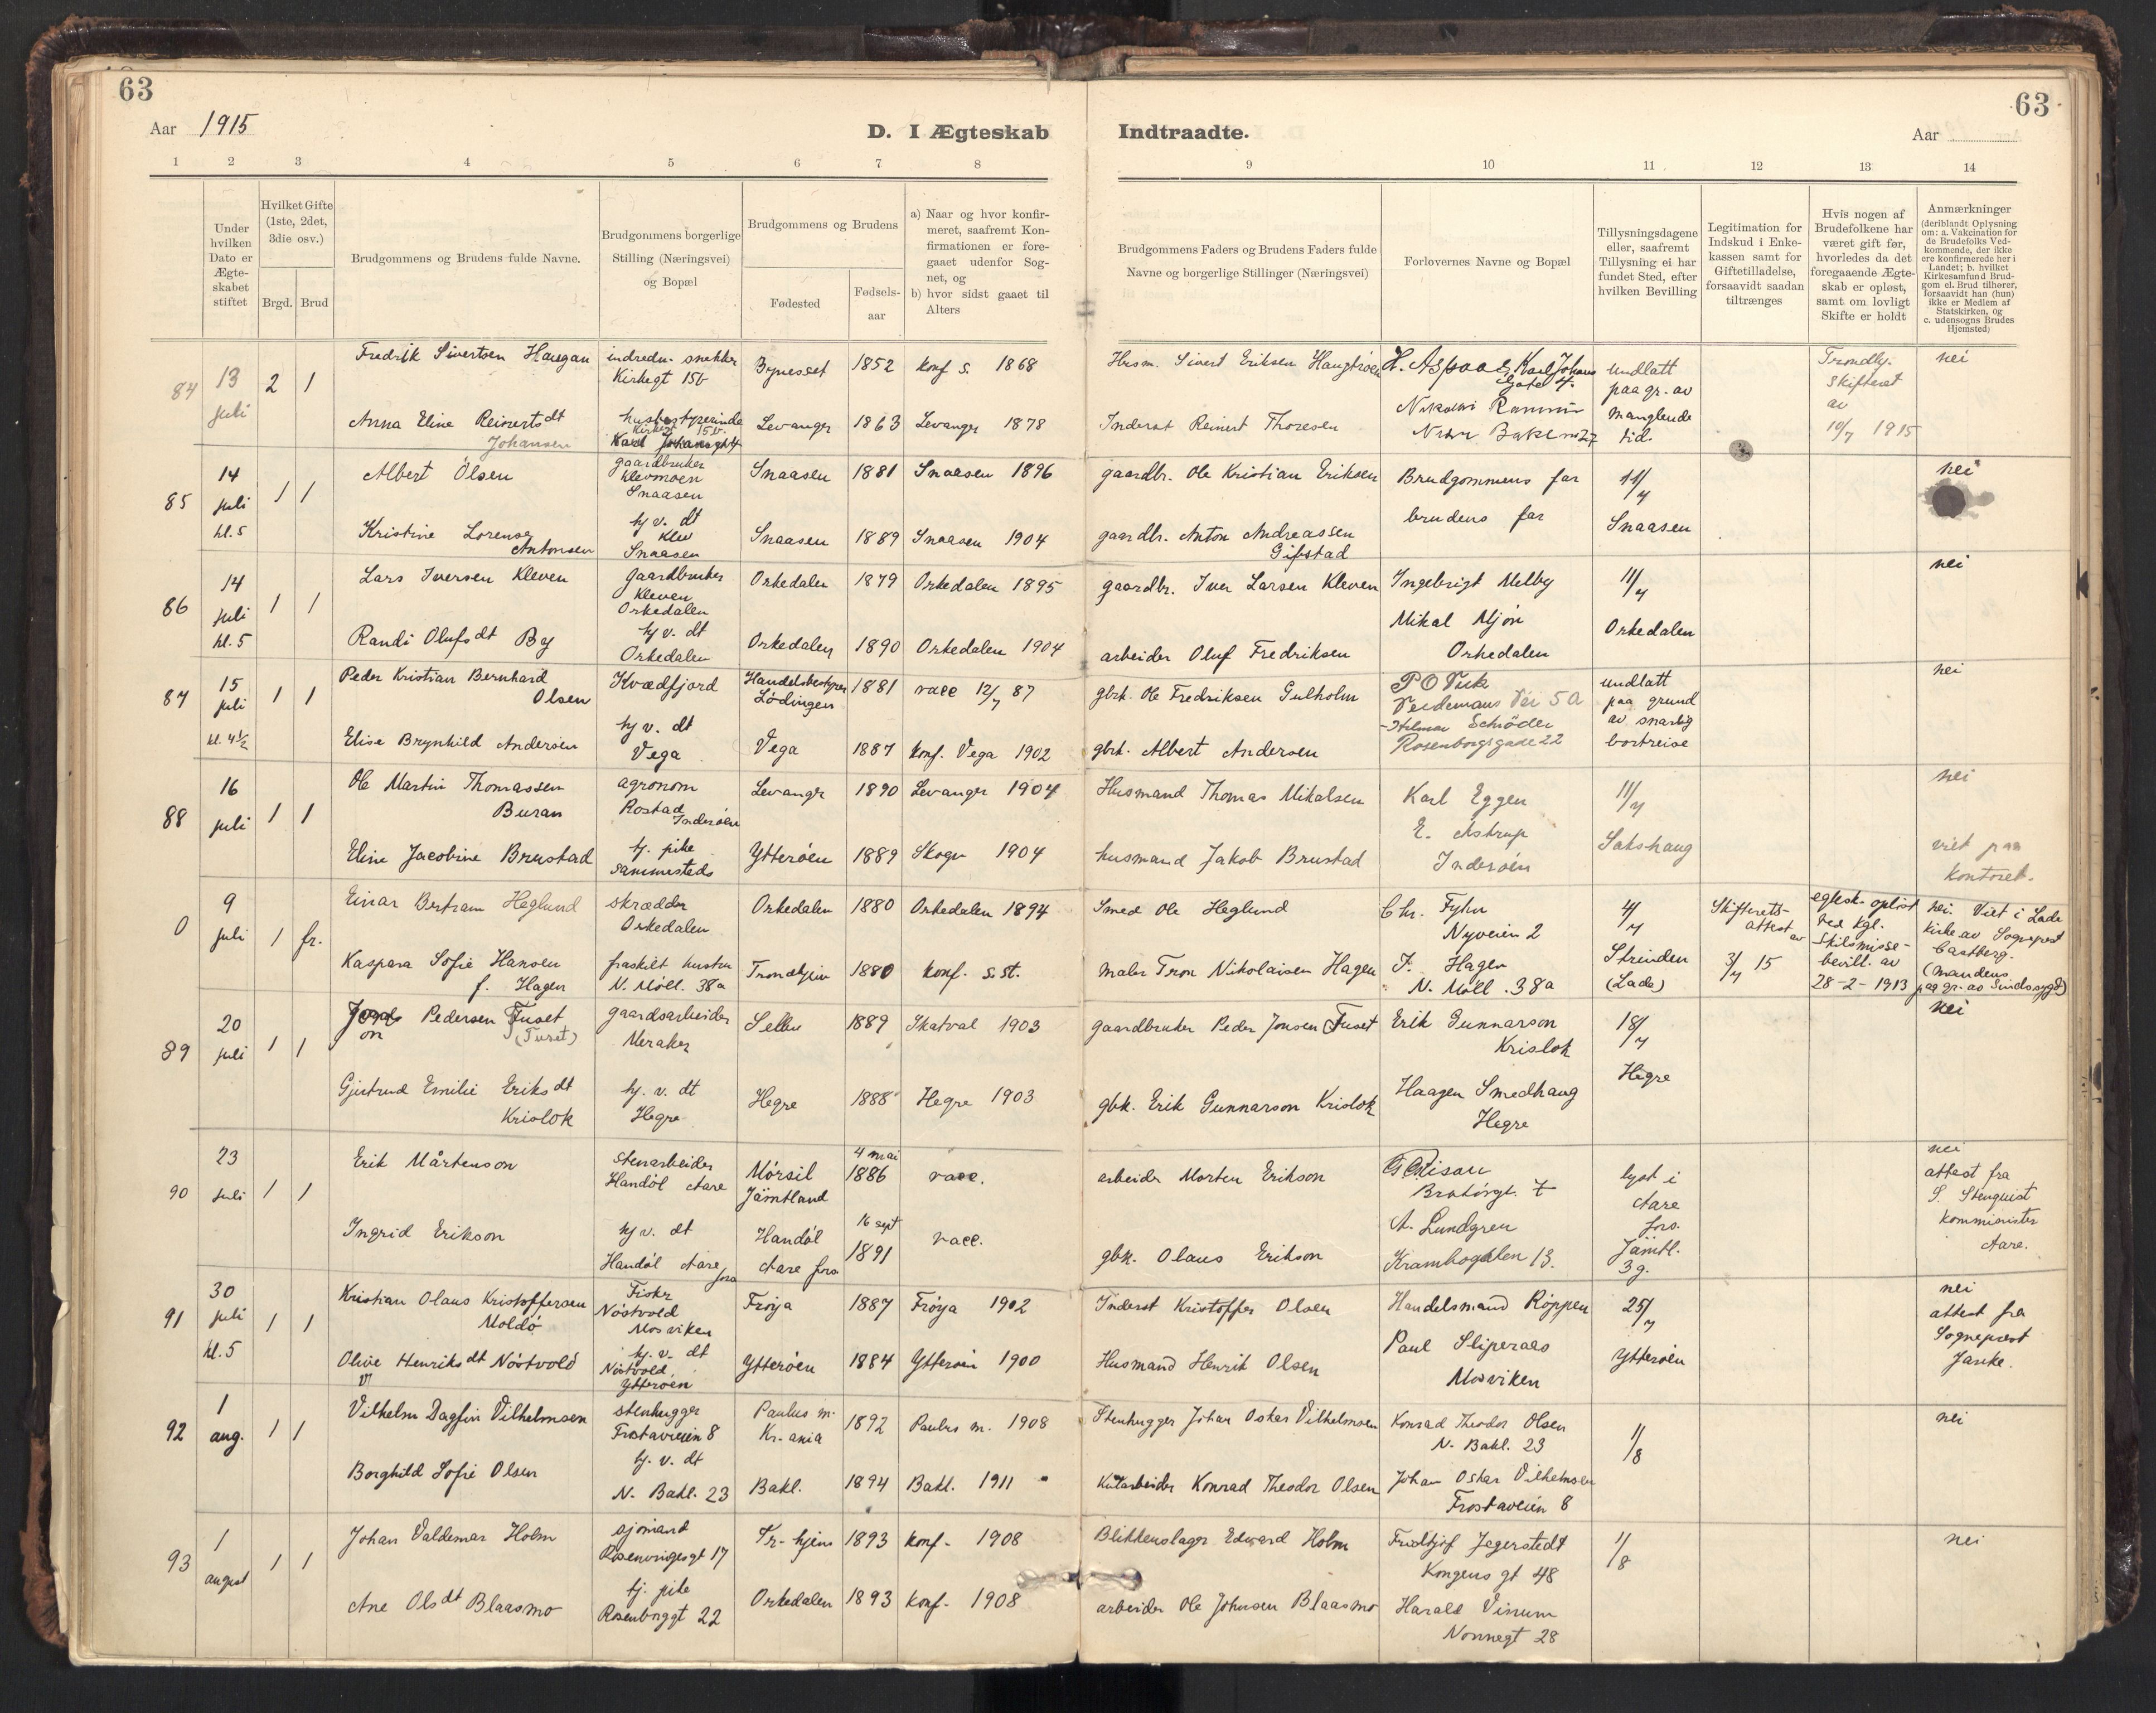 63
63
Aar 1915
D. I Ægteskab Indtraadte.
Aar
1 2 3 4 5 6 7 8 9 10 11 12 13 14
Under hvilken Dato er Ægteskabet stiftet
Hvilket Gifte (1ste, 2det, 3die osv.)
Brgd. Brud
Brudgommens og Brudens fulde Navne.
Brudgommens borgerlige Stilling (Næringsvei) og Bopæl
Brudgommens og Brudens
Fødested
Fødselsaar
a) Naar og hvor konfirmeret, saafremt Konfirmationen er foregaaet udenfor Sognet, og
b) hvor sidst gaaet til Alters
Brudgommens Faders og Brudens Faders fulde Navne og borgerlige Stillinger (Næringsvei)
Forlovernes Navne og Bopæl
Tillysningsdagene eller, saafremt Tillysning ei har fundet Sted, efter hvilken Bevilling
Legitimation for Indskud i Enkekassen samt for Giftetilladelse, forsaavidt saadan tiltrænges
Hvis nogen af Brudefolkene har været gift før, hvorledes da det foregaaende Ægteskab er opløst, samt om lovligt Skifte er holdt
Anmærkninger (deriblandt Oplysning om: a. Vakcination for de Brudefolks Vedkommende, der ikke ere konfirmerede her i Landet; b. hvilket Kirkesamfund Brudgom el. Brud tilhører, forsaavidt han (hun) ikke er Medlem af Statskirken, og c. udensogns Brudes Hjemsted)
84 13 juli 2 1
Fredrik Sivertsen Haugan
snekker
Kirkegt 15b
Bynesset 1852 konf s. 1868
Husm. Sivert Eriksen
H. Aspaas, Karl Johans Gate 4.
undlatt paa gr. av manglende tid.
Trondhj. skifteret av 10/7 1915
nei
Anna Eline Reinertsdt Johansen
husbestyrerinde
Levanger 1863 Levanger 1878
Inderst Reinert Thoresen
85 14 juli kl. 5 1 1
Albert Olsen
gaardbruker
Klevmoen
Snaasen
Snaasen 1881 Snaasen 1896
gaardbr. Ole Kristian Eriksen
Brudgommens far
brudens far
11/7
Snaasen
nei
Kristine Lorense Antonsen
hj v. dt
Klev
Snaasen
Snaasen 1889 Snaasen 1904
gaardbr. Anton Andreassen Gifstad
86 14 juli kl. 5 1 1
Lars Iversen Kleven
gaardbruker
Kleven
Orkedalen
Orkedalen 1879 Orkedalen 1895
gaardbr. Iver Larsen Kleven
Ingebrigt Melby
Mikal Mjøn
Orkedalen
11/7
Orkedalen
nei
Randi Olufsdt By
hj v. dt
Orkedalen
Orkedalen 1890 Orkedalen 1904
arbeider Oluf Fredriksen
87 15 juli kl. 4 1/2 1 1
Peder Kristian Bernhard Olsen
Kvædfjord
Handelsbestyrer
Lødingen 1881 vacc 12/7 87
gbrk. Ole Fredriksen Gulholm
Veidemans Vei 5a
Hilmar Schröder
Rosenborgsgade 22
undlatt paa grund av snarlig bortreise
nei
Elise Brynhild Andersen
hj v. dt
Vega
Vega 1887 konf. Vega 1902
gbrk. Albert Andersen
88 16 juli 1 1
Ole Martin Thomassen Buran
agronom
Rostad
Inderøen
Levanger 1890 Levanger 1904
Husmand Thomas Mikalsen
Karl Eggen
E. Astrup
Inderøen
11/7
Sakshaug
nei
viet paa kontoret.
Eline Jacobine Brustad
tj. pike
sammesteds
Ytterøen 1889 Skogn 1904
husmand Jakob Brustad
0 9 juli 1 fr.
Einar Bertram Heglund
skrædder
Orkedalen
Orkedalen 1880 Orkedalen 1894
Smed Ole Heglund
Chr. Fyhn
Nyveien 2
4/7
Strinden
(Lade)
Skifterets-attest av 3/7 15
egtesk. opløst ved kgl. skilsmisse-bevill. av 28-2-1913
nei. Viet i Lade kirke av Sogneprest Castberg. (mandens paa gr. av Sindssygd)
Kaspara Sofie Hansen f. Hagen
fraskilt hustru
N. Møll. 38a
Trondhjem 1880 konf. s. st.
maler Tron Nikolaisen Hagen
F. Hagen
N. Møll. 38a
89 20 juli 1 1
Jon Pedersen Fuset
gaardsarbeider
Meraker
Selbu 1889 Skatval 1903
gaardbruker Peder Jonsen Fuset
Erik Gunnarson Krislok
Haagen Smedhaug
Hegre
18/7
Hegre
nei
Gjertrud Emilie Eriksdt Krislok
hj. v. dt
Hegre
Hegre 1888 Hegre 1903
gbk. Erik Gunnarson Krislok
90 23 juli 1 1
Erik Mårtenson
stenarbeider
Handöl Aare
Mörsil Jämtland
4 mai 1886 vacc.
arbeider Morten Erikson
Bratørgt. 7
A. Lundgren
Krambogaten 13.
lyst i Aare fors. Jämtl. 3 g.
nei
attest fra S. Stenquist kommunister Aare.
Ingrid Erikson
hj v. dt
Handöl Aare fors
Handöl Aare fors
16 sept 1891 vacc.
gbk. Olaus Erikson
91 30 juli kl. 5 1 1
Kristian Olaus Kristoffersen Moldø
Fisker
Nöstvold
Mosviken
Frøya 1887 Frøya 1902
Inderst Kristoffer Olsen
Handelsmand Röppen
Paul Sliperaas
Mosviken
25/7
Ytterøen
nei
attest fra Sogneprest
Olive Henriksdt Nöstvold
hj. v. dt
Nöstvold
Ytterøen
Ytterøen 1884 Ytterøen 1900
Husmand Henrik Olsen
92 1 aug. 1 1
Vilhelm Dagfin Vilhelmsen
stenhugger
Frostaveien 8
Paulus m. Kr.ania 1892 Paulus m. 1908
Stenhugger Johan Oskar Vilhelmsen
Konrad Theodor Olsen
N. Bakl. 23
Johan Oskar Vilhelmsen
Frostaveien 8
1/8
nei
Borghild Sofie Olsen
hj. v. dt
N. Bakl. 23
Bakl. 1894 Bakl. 1911
Konrad Theodor Olsen
93 1 august 1 1
Johan Valdemar Holm
sjømand
Tr-hjem 1893 konf. 1908
Blikkenslager Edvard Holm
Fridtjof Jegerstedt
Kongens gt 48
1/8
nei
Ane Olsdt Blaasmo
tj. pike
Rosenborggt 22
Orkedalen 1893 konf. 1908
arbeider Ole Johnsen Blaasmo
Harald Vinum
Nonnegt 28